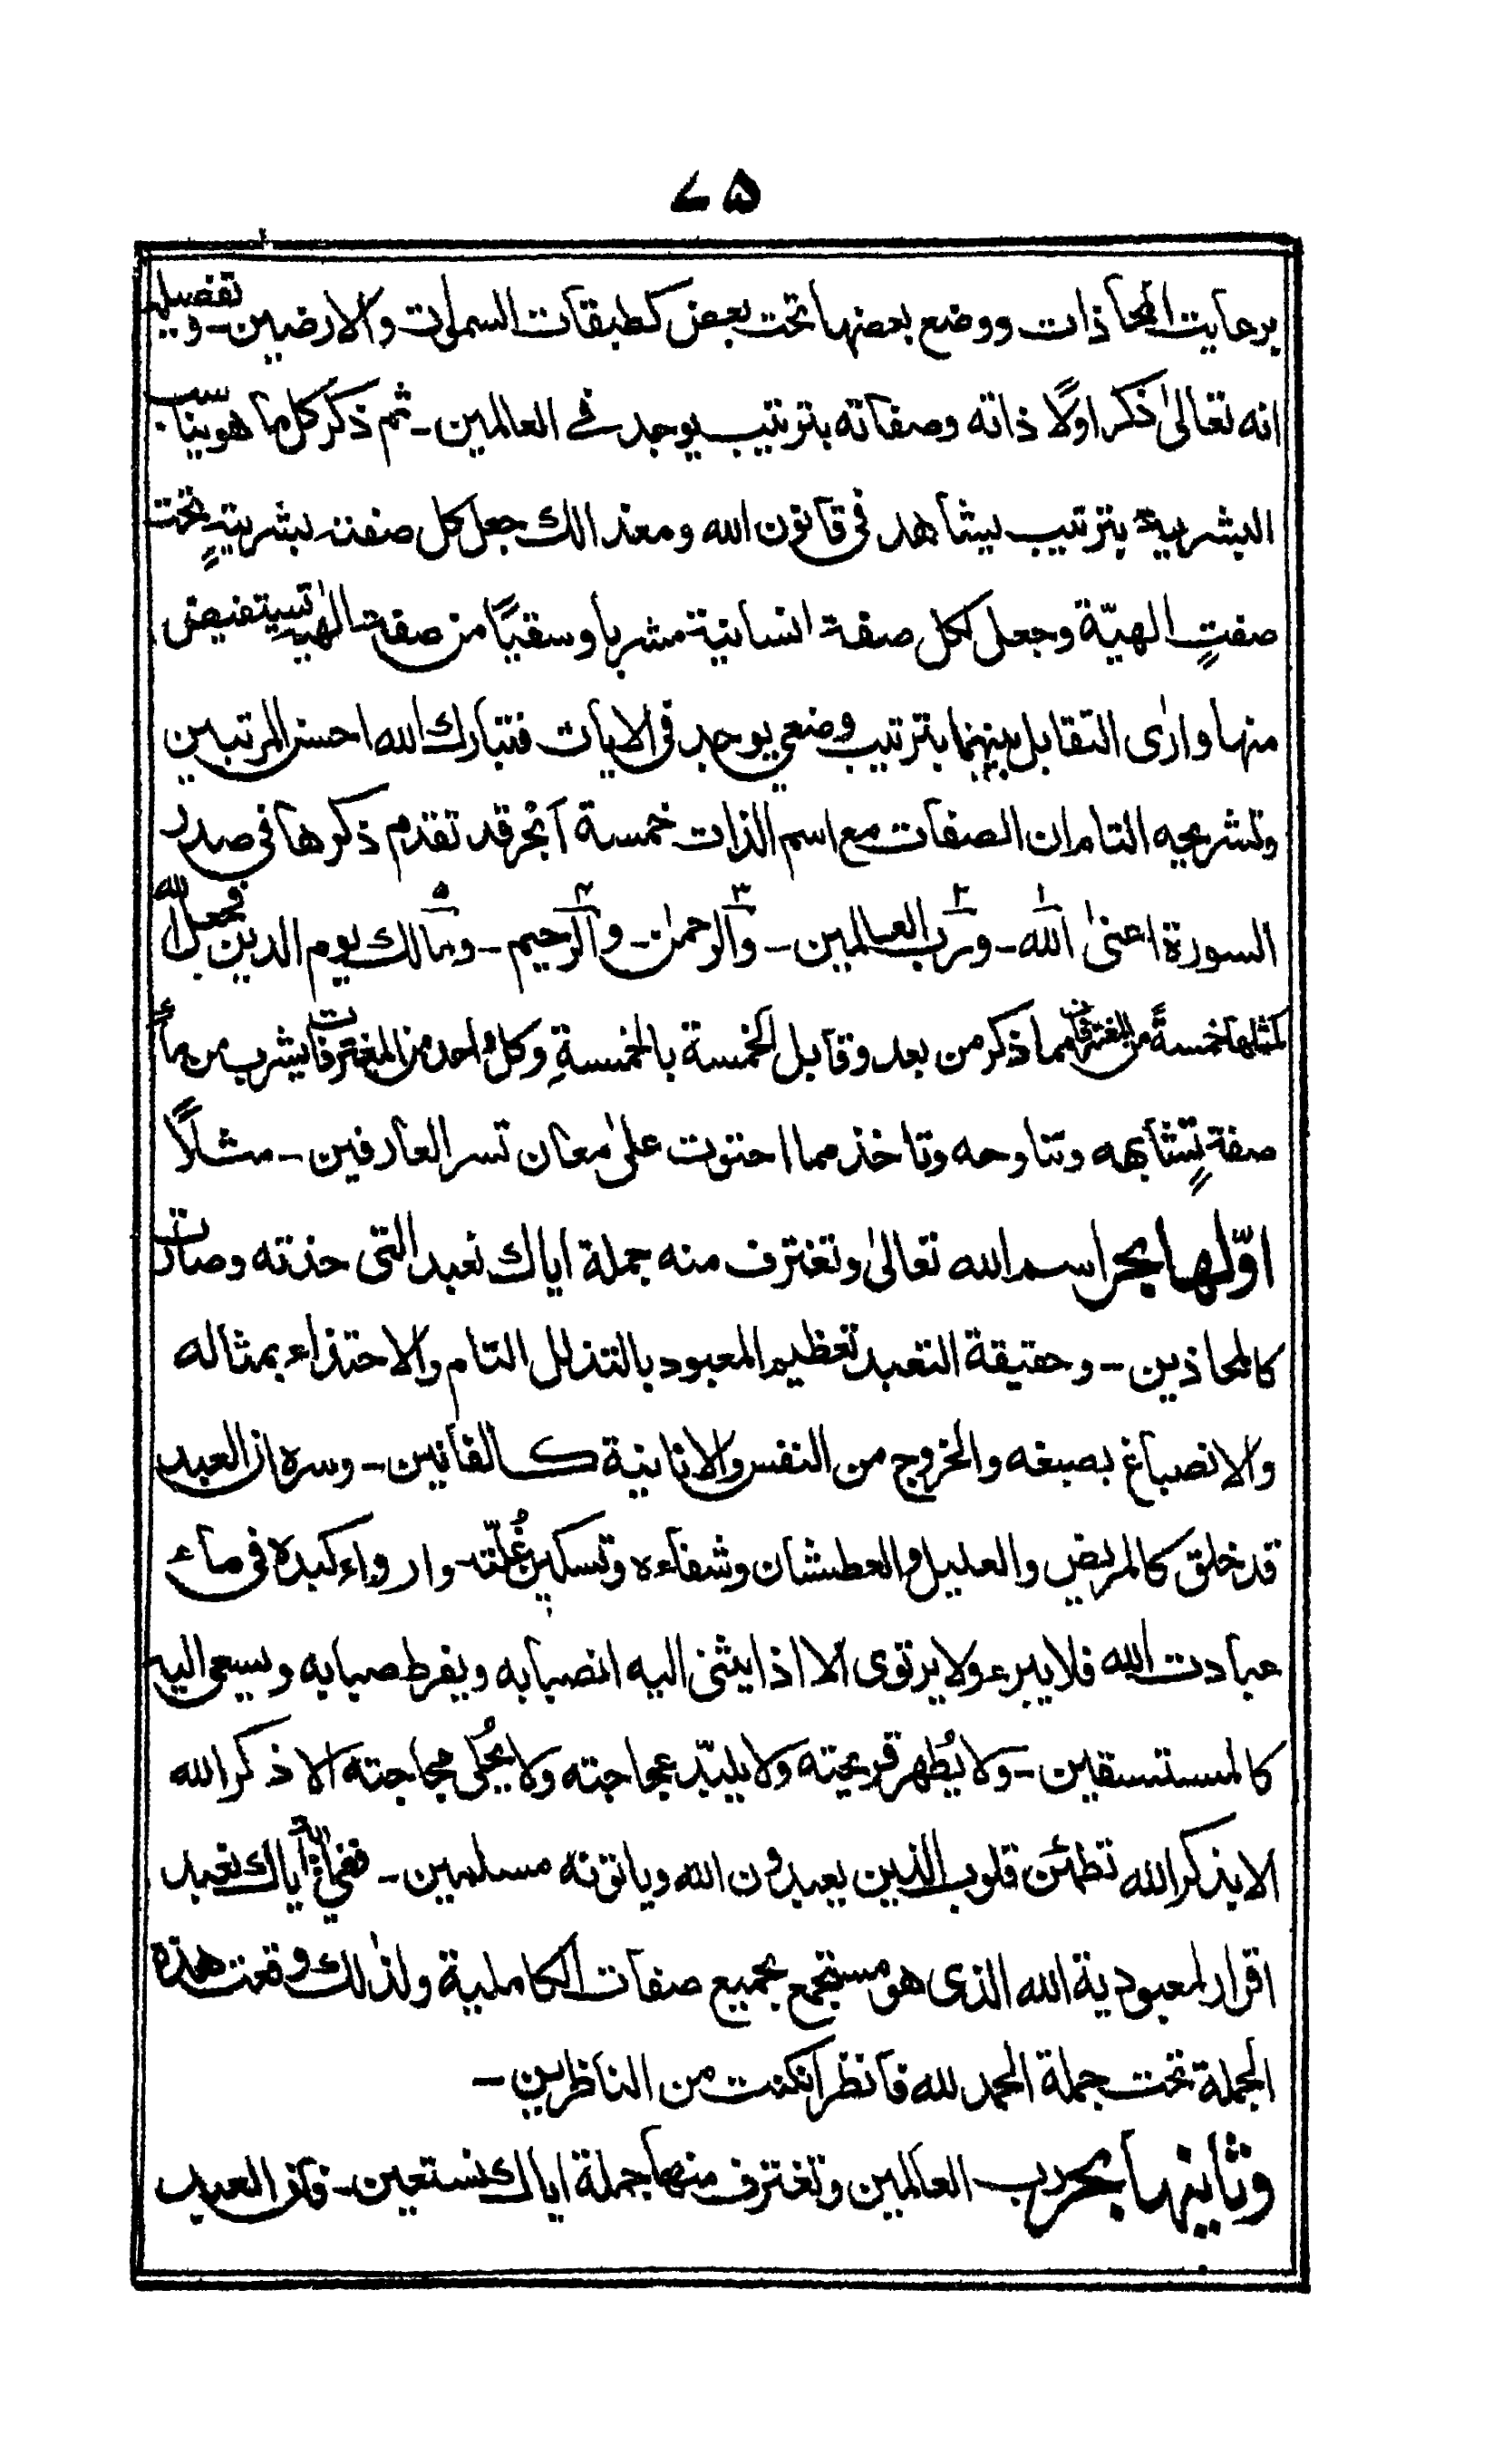 ۷۵
برعایت المحاذات ووضع بعضها تحت بعض کطبقات السمٰوات والارضین۔ وتفصیله
انه تعالیٰ ذکر اولًا ذاته وصفاته بترتیب یوجد فی العالمین۔ ثم ذکر کل ما هو یناسب
البشریة بترتیب یشاهد فی قانون الله ومعذالك جعل کل صفة بشریةٍ تحت
صفتٍ الهیّة وجعل لکل صفة انسانیة مشربا وسقیًا من صفة الٰهیة تستفیض
منها واریٰ التقابل بینهما بترتیب وضعی یوجد فی الایات فتبارك الله احسن المرتبین
وتشریحه التام ان الصفات مع اسم الذات خمسة ابحُر قد تقدم ذکرها فی صدر
السورة اعنیٰ ۱ الله۔ و۲ رب العالمین۔ و۳ الرحمٰن۔ و۴ الرحیم۔ و۵ مالك یوم الدین فجعل الله
کمثلها خمسةً من المغترفات مما ذکر من بعد وقابل الخمسة بالخمسةِ وکل واحد من المغترفات یشرب من ماء
صفةٍ تشابهه وتناوحه وتاخذ مما احتوت علیٰ معان تسر العارفین۔ مثلًا
اوّلها بحر اسم الله تعالیٰ وتغترف منه جملة ایاك نعبد التی حذته وصارت
کالمحاذین۔ وحقیقة التعبد تعظیم المعبود بالتذلل التام والاحتذاء بمثاله
والانصباغ بصبغه والخروج من النفس والانانیة کالفانین۔ وسره ان العبد
قد خلق کالمریض والعلیل والعطشان وشفاءه وتسکین غُلّته وارواء کبده فی ماء
عبادت الله فلا یبرء ولا یرتوی الا اذا یثنی الیه انصبابه ویفرط صبابه ویسعی الیه
کالمستسقین۔ ولا یُطهر قریحته ولا یلبّد عجاجته ولا یُحلی مجاجته الا ذکر الله
الا بذکر الله تطمئن قلوب الذین یعبدون الله ویاتونه مسلمین۔ ففی ایاك نعبد
اقرار لمعبودیة الله الذی هو مستجمع بجمیع صفات الکاملیة ولذٰلك وقعت هذه
الجملة تحت جملة الحمد لله فانظر ان کنت من الناظرین۔
وثانیها بحر رب العالمین وتغترف منها جملة ایاك نستعین۔ فان العبد